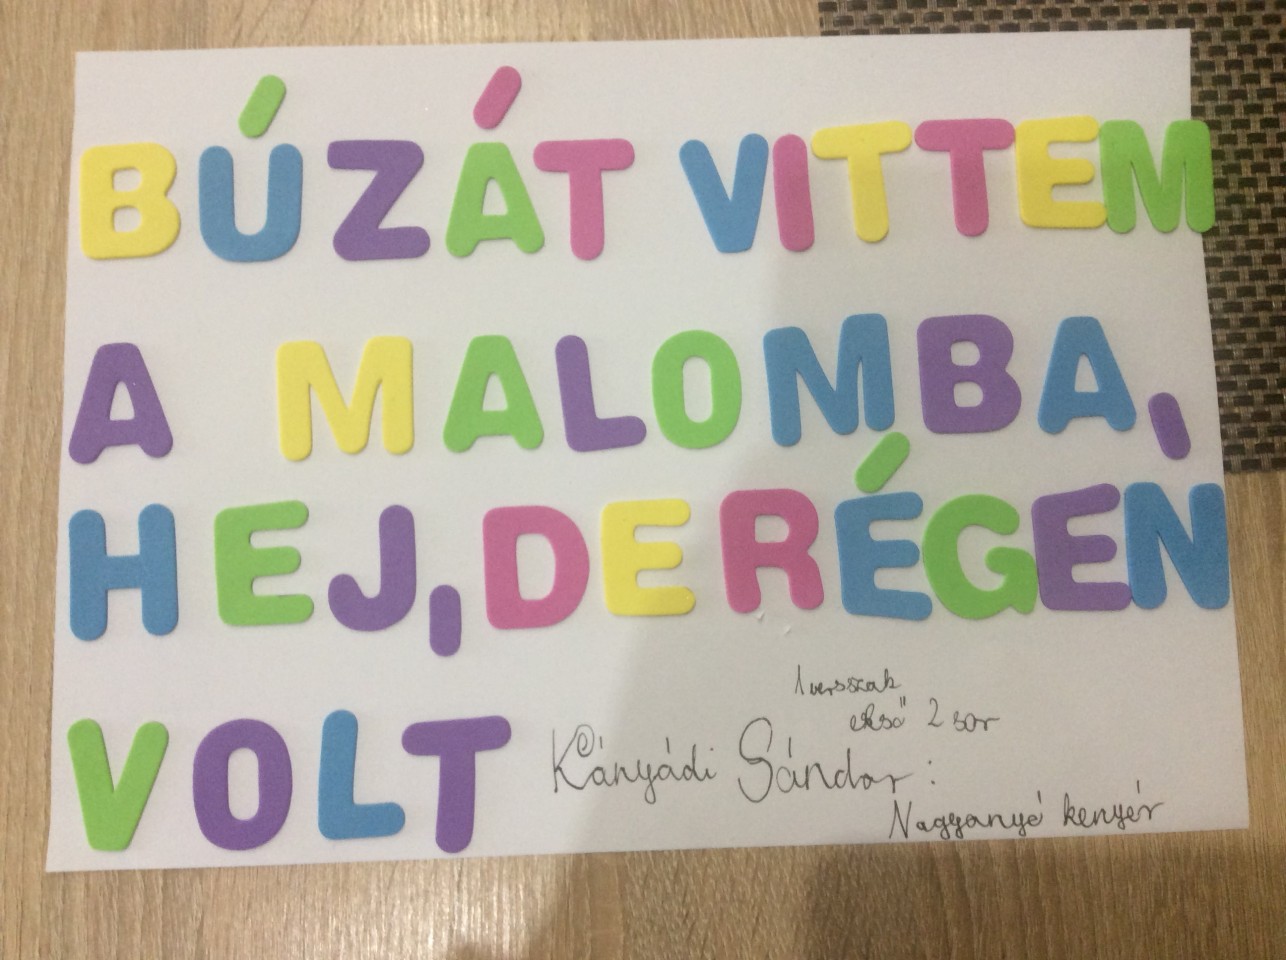 BÚZÁT VITTEM
A MALOMBA,
HEJ, DE RÉGEN
VOLT
1 versszak
első 2 sor
Kányádi Sándor:
Nagyanyó kenyér